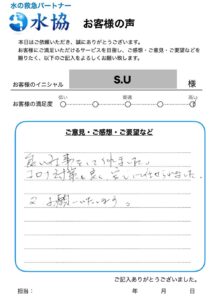 水の救急パートナー
水協 お客様の声
本日はご依頼いただき、誠にありがとうございます。
お客様にご満足いただけるサービスを目指し、ご感想・ご意見・ご要望などを
賜りたく、以下のご記入をよろしくお願い致します。
お客様のイニシャル S.U 様
低い 普通 高い
お客様の満足度
ご意見・ご感想・ご要望など
良い仕事をして頂きました。
コロナ対策も良く、安心して任せられました。
又お願いいたします。
ご記入ありがとうございました。
担当: 年 月 日